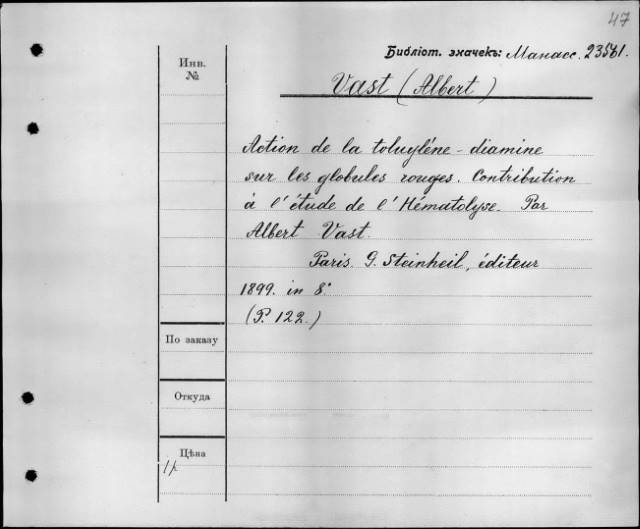 47
Библіот. значекъ: Манасс. 23561.
Инв.
№
Vast (Albert)
Action de la toluylène-diamine
sur les globules rouges. Contribution
à l'étude de l'Hématolyse. Par
Albert Vast.
Paris. G. Steinheil, éditeur
1899. in 8°
(P. 122.)
По заказу
Откуда
Цѣна
1 р